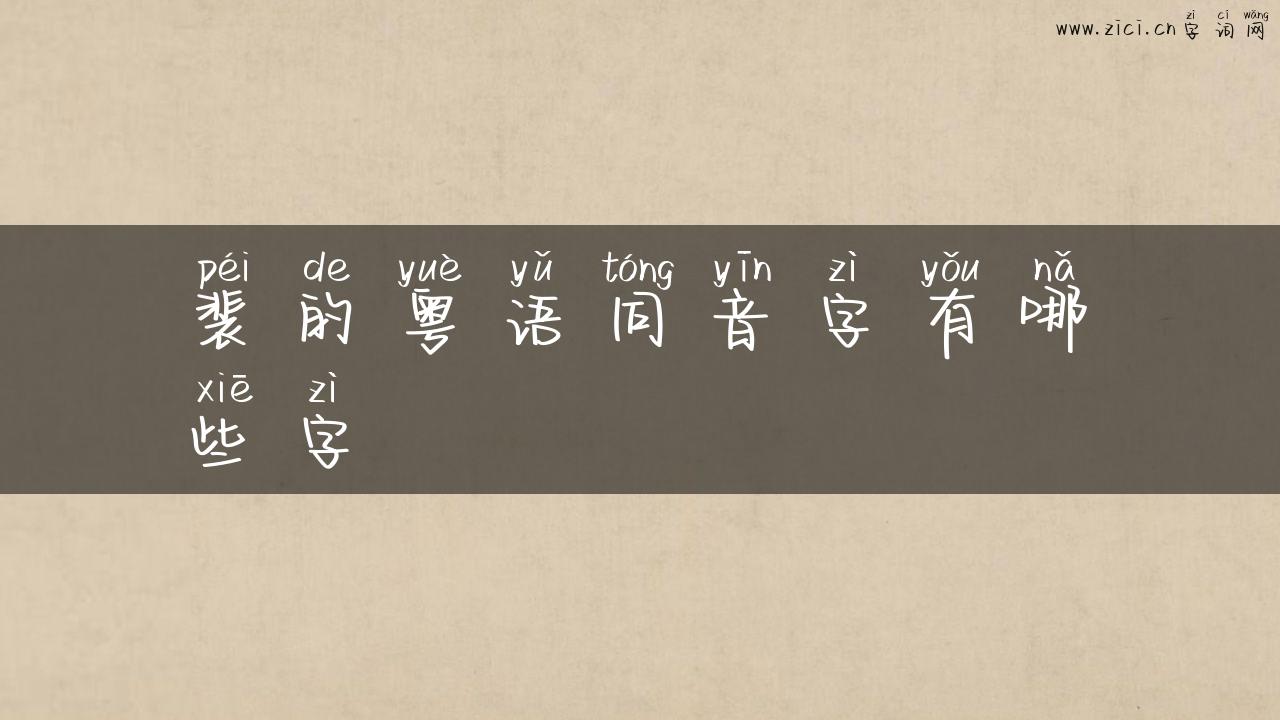 zì cí wǎng
www.zici.cn 字词网
péi de yuè yǔ tóng yīn zì yǒu nǎ
裴的粤语同音字有哪
xiē zì
些字